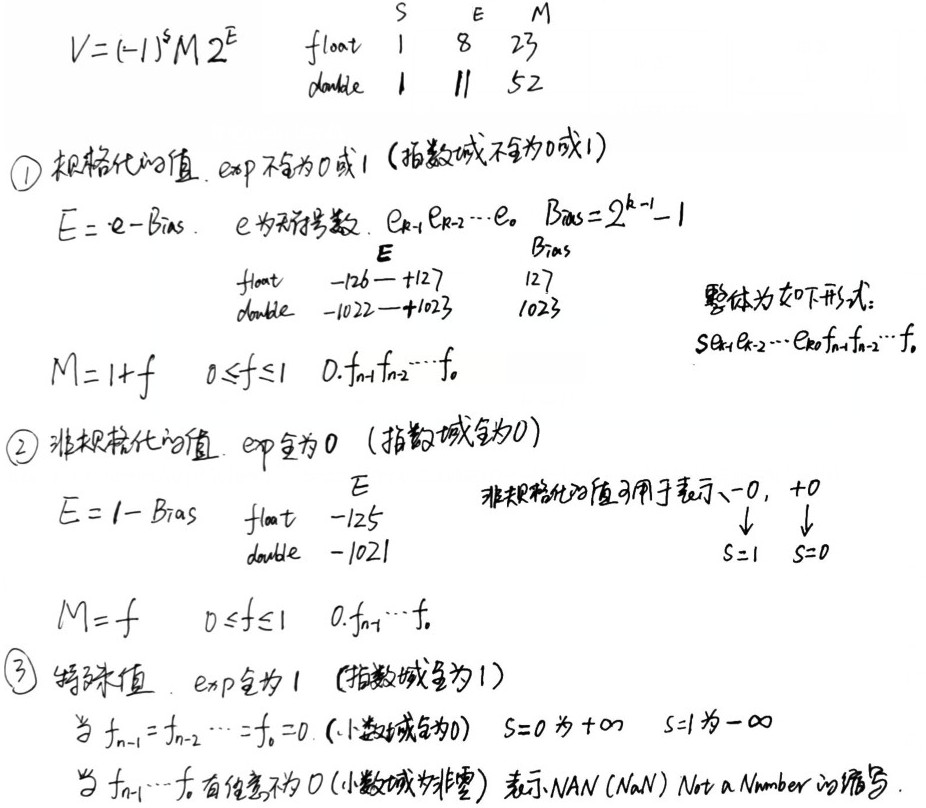 S E M
V=(-1)^S M 2^E float 1 8 23
double 1 11 52
① 规格化的值. exp不全为0或1 (指数域不全为0或1)
E = e - Bias. e为无符号数. e_{k-1}e_{k-2}⋯e_0 Bias=2^{k-1}-1
E Bias
float -126 — +127 127
double -1022 — +1023 1023
整体为如下形式:
se_{k-1}e_{k-2}⋯e_{k0}f_{n-1}f_{n-2}⋯f_0
M=1+f 0≤f≤1 0.f_{n-1}f_{n-2}⋯f_0
② 非规格化的值. exp全为0 (指数域全为0)
E
E = 1 - Bias float -125
double -1021
非规格化的值可用于表示、-0, +0
↓ ↓
S=1 S=0
M=f 0≤f≤1 0.f_{n-1}⋯f_0
③ 特殊值. exp全为1 (指数域全为1)
当 f_{n-1}=f_{n-2}⋯=f_0=0. (小数域全为0) S=0为+∞ S=1为-∞
当 f_{n-1}⋯f_0有任意不为0(小数域为非零) 表示NAN(NaN) Not a Number的缩写.